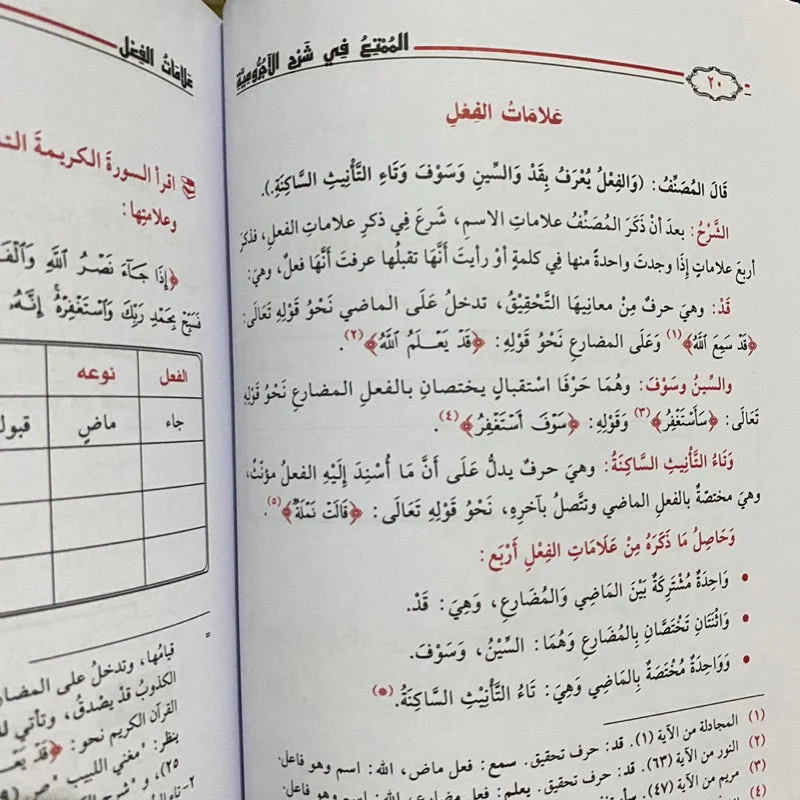 المُمْتِعُ فِي شَرْحِ الآجُرُّومِيَّةِ
٢٠
عَلامَاتُ الفِعْلِ
قَالَ المُصَنِّفُ: (وَالفِعْلُ يُعْرَفُ بِقَدْ وَالسِّينِ وَسَوْفَ وَتَاءِ التَّأْنِيثِ السَّاكِنَةِ.).
الشَّرْحُ: بعدَ أنْ ذَكَرَ المُصَنِّفُ علاماتِ الاسمِ، شَرَعَ فِي ذكرِ علاماتِ الفعلِ، فذكرَ
أربعَ علاماتٍ إذَا وجدتَ واحدةً منها فِي كلمةٍ أوْ رأيتَ أنَّهَا تقبلُها عرفتَ أنَّهَا فعلٌ، وهيَ:
قَدْ: وهيَ حرفٌ مِنْ معانِيهَا التَّحْقِيْقُ، تدخلُ عَلَى الماضي نَحْوُ قَوْلِهِ تَعَالَى:
﴿قَدْ سَمِعَ اللَّهُ﴾(١) وَعَلَى المضارعِ نَحْوُ قَوْلِهِ: ﴿قَدْ يَعْلَمُ اللَّهُ﴾(٢).
والسِّينُ وسَوْفَ: وهُمَا حَرْفَا اسْتقبالٍ يختصانِ بالفعلِ المضارعِ نَحْوُ قَوْلِهِ
تَعَالَى: ﴿سَأَسْتَغْفِرُ﴾(٣) وَقَوْلِهِ: ﴿سَوْفَ أَسْتَغْفِرُ﴾(٤).
وَتَاءُ التَّأْنِيْثِ السَّاكِنَةُ: وهيَ حرفٌ يدلُّ عَلَى أنَّ مَا أُسْنِدَ إلَيْهِ الفعلُ مؤنَثٌ،
وهيَ مختصّةٌ بالفعلِ الماضي وتتَّصلُ بآخرِهِ، نَحْوُ قَوْلِهِ تَعَالَى: ﴿قَالَتْ نَمْلَةٌ﴾(٥).
وَحَاصِلُ مَا ذَكَرَهُ مِنْ عَلَامَاتِ الفِعْلِ أَرْبَع:
• وَاحِدَةٌ مُشْتَرِكَةٌ بَيْنَ المَاضِي وَالمُضَارِعِ، وَهِيَ: قَدْ.
• وَاثْنَتَانِ تَخْتَصَّانِ بِالمُضَارِعِ وَهُمَا: السِّيْنُ، وَسَوْفَ.
• وَوَاحِدَةٌ مُخْتَصَةٌ بِالمَاضِي وَهِيَ: تَاءُ التَّأْنِيْثِ السَّاكِنَةُ.(*)
(١) المجادلة من الآية (١). قد: حرف تحقيق. سمع: فعل ماض، الله: اسم وهو فاعل.
(٢) النور من الآية (٦٣). قد: حرف تحقيق. يعلم: فعل مضارع، الله: اسم وهو فاعل.
(٣) مريم من الآية (٤٧).
(٤)
عَلامَاتُ الفِعْل
اقرأ السورةَ الكريمةَ
وعلامتِها:
﴿إِذَا جَاءَ نَصْرُ اللَّهِ
فَسَبِّحْ بِحَمْدِ رَبِّكَ وَاسْتَغْفِرْهُ إِنَّهُ
الفعل نوعه
جاء ماضٍ
=
قيامُها، وتدخلُ على
الكذوبُ قدْ يصْدقُ، وتأتي
القرآن الكريم نحو: ﴿قَدْ
ينظر: "مغني اللبيب" ص
٢٥)، و"